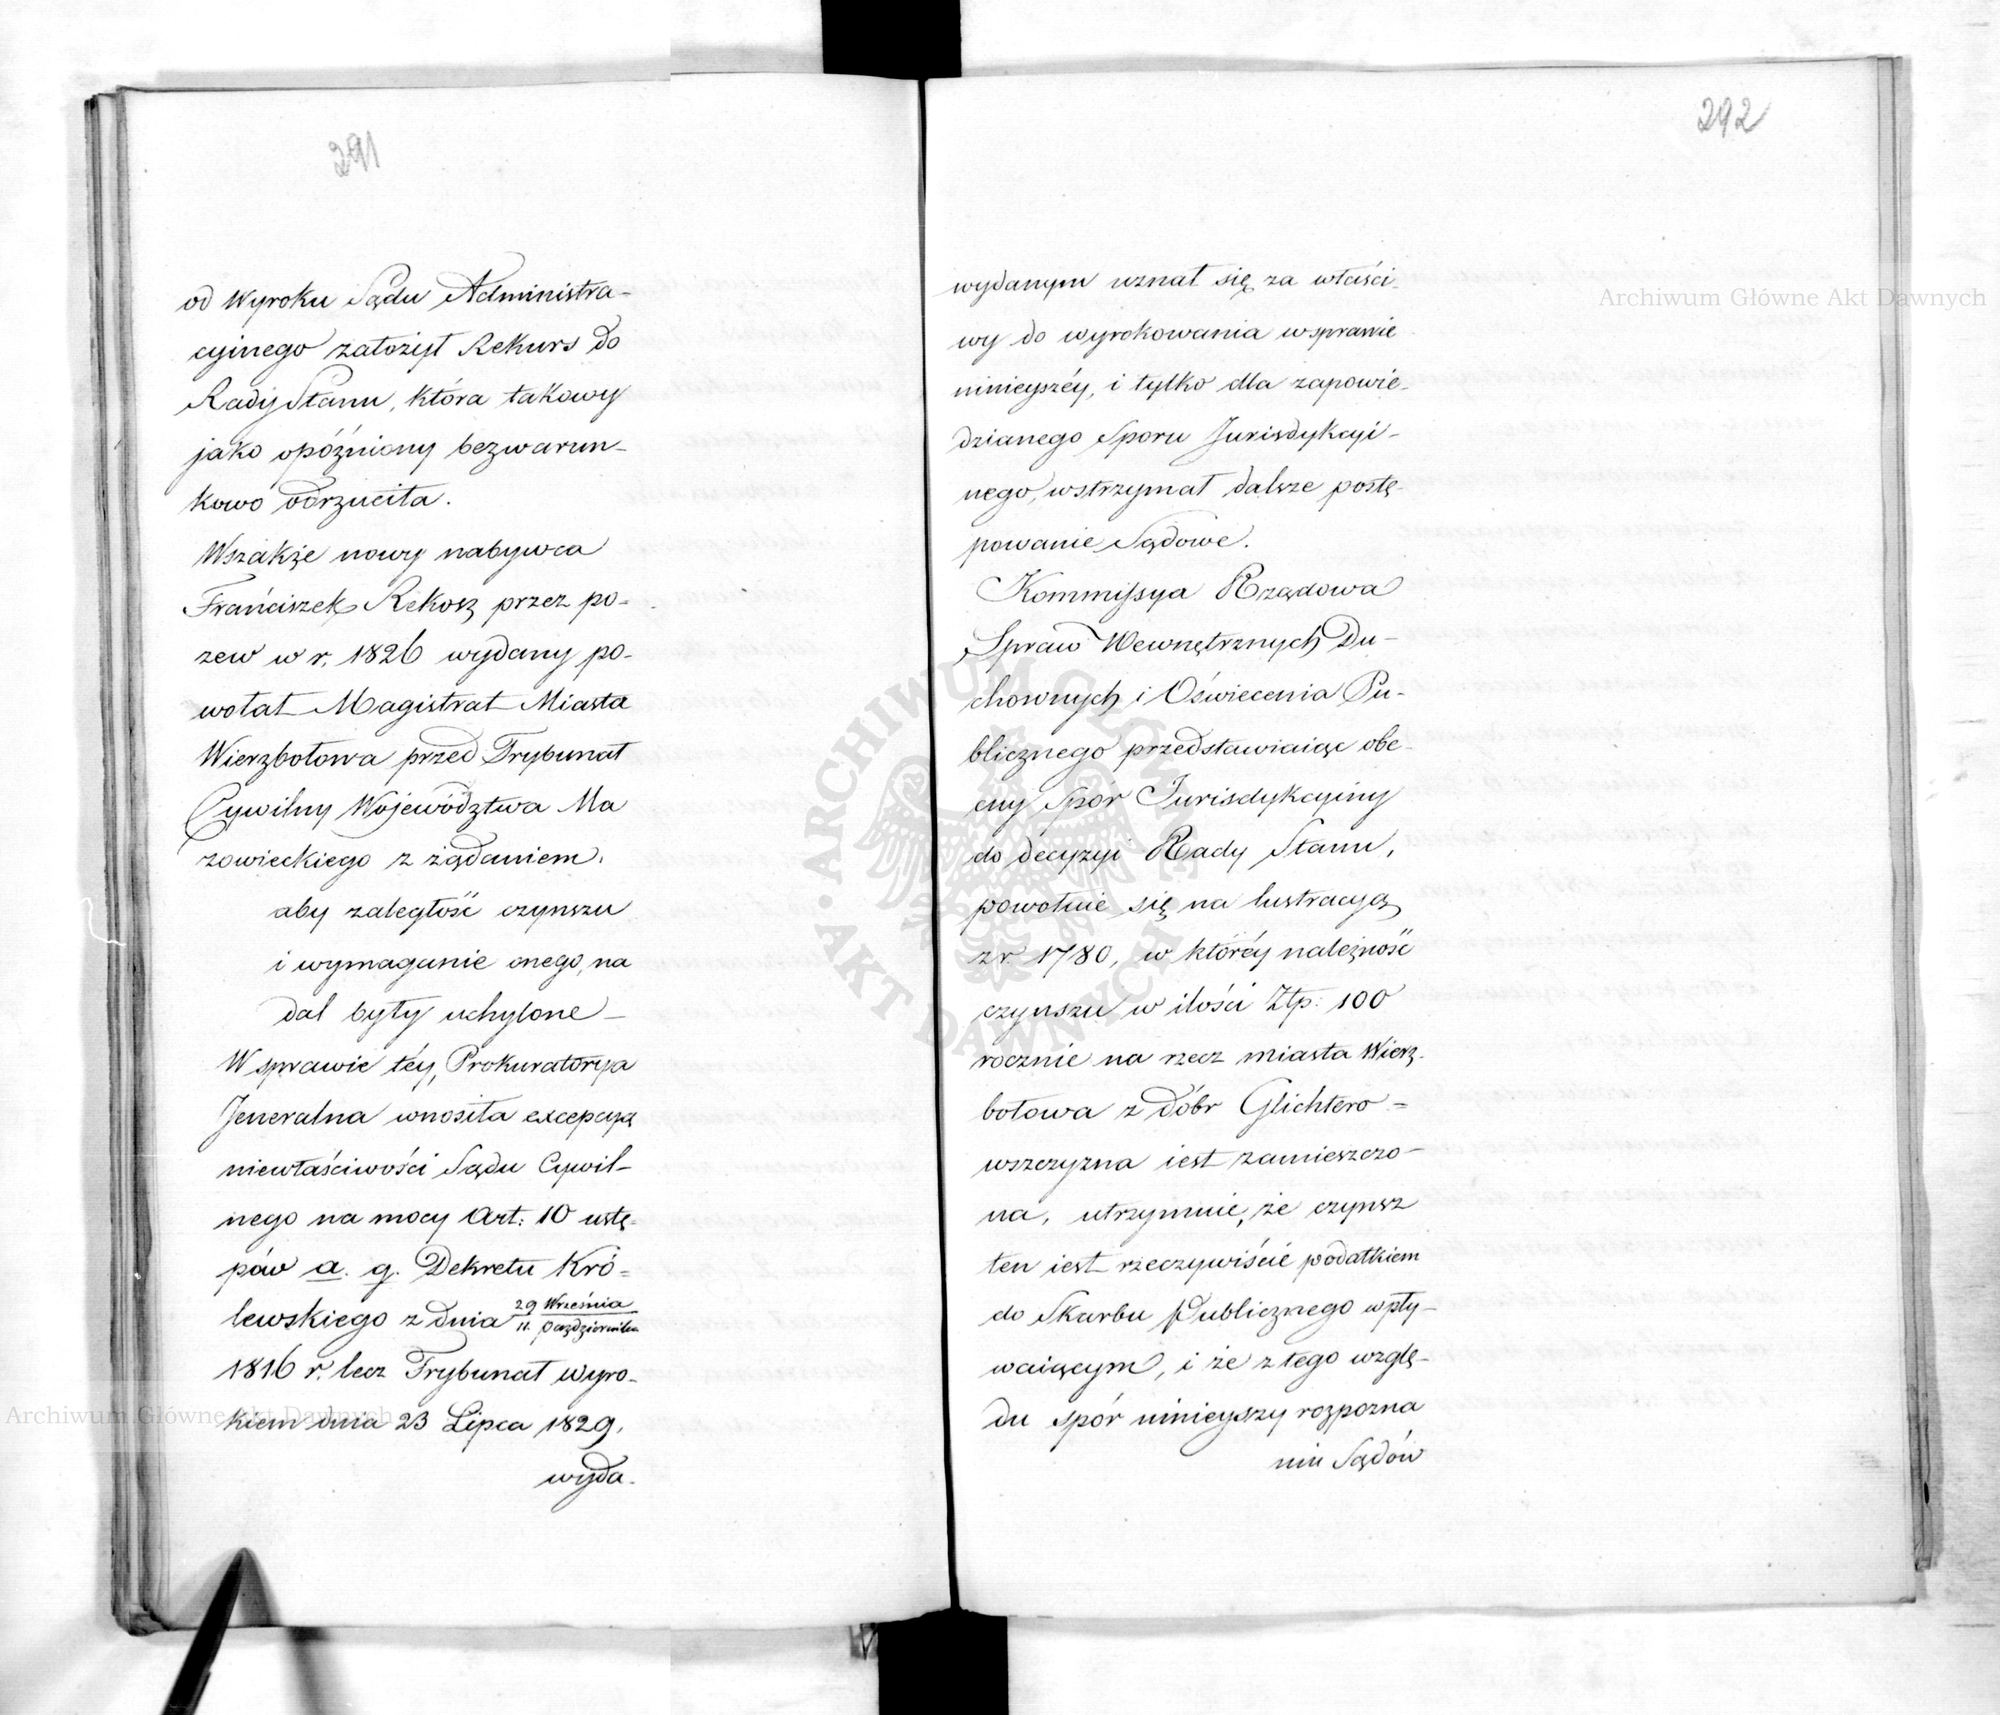 291
od Wyroku Sądu Administra-
cyinego założył Rekurs do
Rady Stanu, która takowy
jako opóźniony bezwarun-
kowo odrzuciła.
Wszakże nowy nabywca
Franciszek Rekosz przez po-
zew w r. 1826 wydany po-
wołał Magistrat Miasta
Wierzbołowa przed Trybunał
Cywilny Województwa Ma
zowieckiego z żądaniem.
aby zaległość czynszu
i wymaganie onego, na
dal były uchylone –
W sprawie téy, Prokuratorya
Jeneralna wnosiła excepcyą
niewłaściwości Sądu Cywil-
nego na mocy Art: 10 ustę-
pów a. g. Dekretu Kró-
lewskiego z dnia 29 Września / 11. Października
1816 r. lecz Trybunał wyro-
kiem dnia 23 Lipca 1829.
wyda-
292
wydanym uznał się za właści-
wy do wyrokowania w sprawie
ninieyszéy, i tylko dla zapowie-
dzianego Sporu Jurisdykcyi-
nego, wstrzymał dalsze postę-
powanie Sądowe.
Kommissya Rządowa
Spraw Wewnętrznych Du-
chownych i Oświecenia Pu-
blicznego przedstawiaiąc obe-
cny Spór Jurisdykcyiny
do decyzyi Rady Stanu,
powołuie się na lustracyą
z r. 1780, w któréy należność
czynszu w ilości Złp: 100
rocznie na rzecz miasta Wierz-
bołowa z dóbr Glichtero-
wszczyzna iest zamieszczo-
na, utrzymuie, że czynsz
ten iest rzeczywiście podatkiem
do Skarbu Publicznego wpły-
waiącym, i że z tego wzglę-
du spór ninieyszy rozpozna
niu Sądów
Archiwum Główne Akt Dawnych
Archiwum Główne Akt Dawnych
ARCHIWUM GŁÓWNE · AKT DAWNYCH